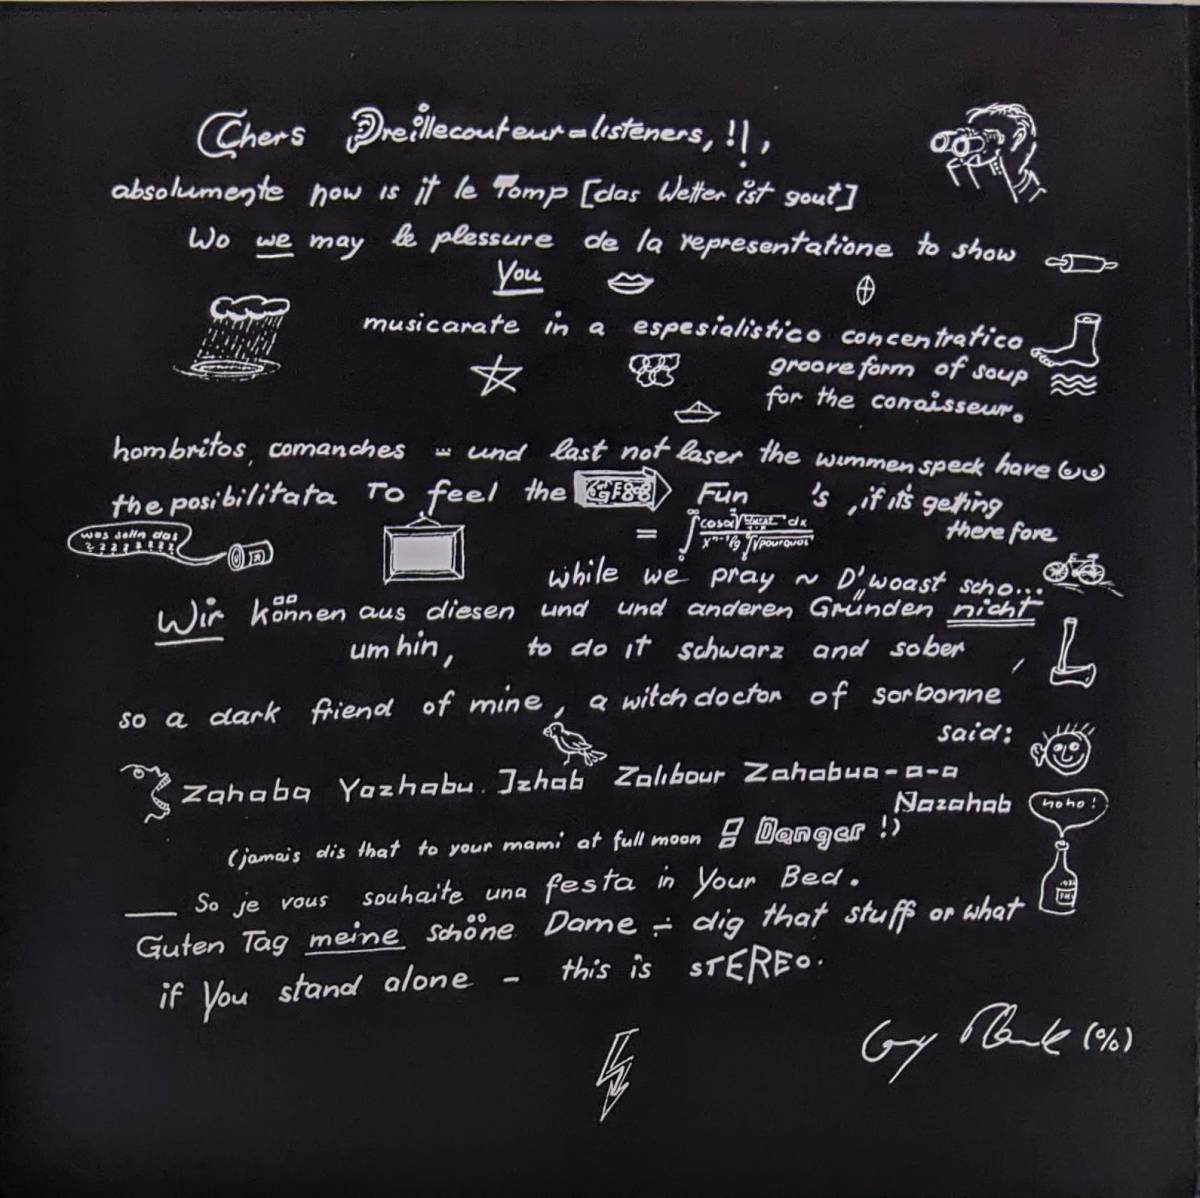 Chers Oreillecouteur=listeners, !!,
absolumente now is it le Tomp [das Wetter ist gout]
Wo we may le plessure de la representatione to show
You
musicarate in a espesialistico concentratico
grooveform of soup
for the conaisseur.
hombritos, comanches = und last not laser the wimmenspeck have
the posibilitata To feel the Fun 's, if it's getting
there fore
was solln das
? ? ? ? ? ? ? ?
=
while we pray ~ D'woast scho...
Wir können aus diesen und und anderen Gründen nicht
umhin, to do it schwarz and sober,
so a dark friend of mine, a witchdoctor of sorbonne
said:
Zahaba Yazhabu Izhab Zalibour Zahabua-a-a
Nazahab
hoho!
(jamais dis that to your mami at full moon Danger !)
So je vous souhaite una festa in Your Bed.
Guten Tag meine schöne Dame ÷ dig that stuff or what
if You stand alone - this is STEREO.
(%)